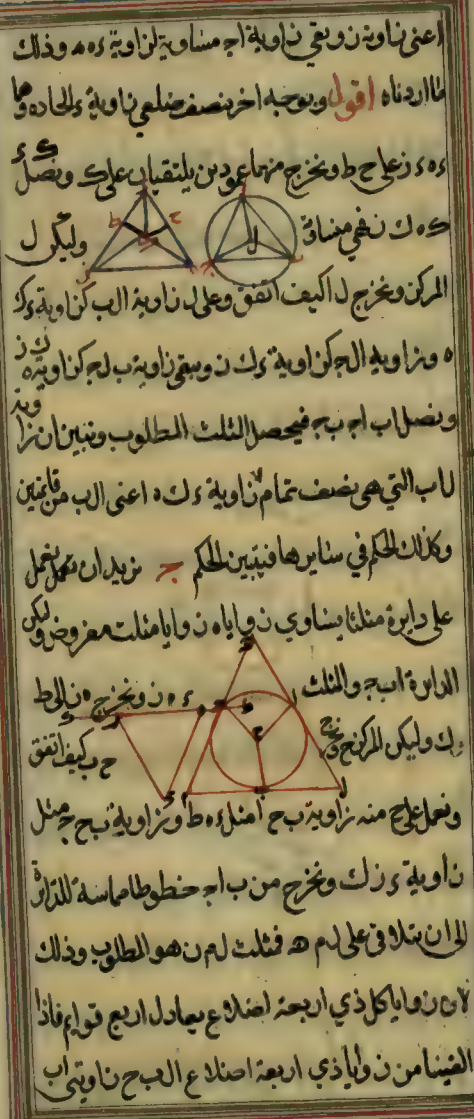 اعنى زاوية ز وبقي زاوية اج مساوية لزاوية ء ه وذلك
ما اردناه اقول وبوجه اخر ننصف ضلعي زاوية ء الحادة وهما
ء ه ء ز على ح ط ونخرج منهما عمودين يلتقيان على ك ونصل ك ء
ك ه ك ز فهي متساوية وليكن ل
المركز ونخرج ل ا كيف اتفق وعلى ل زاوية ا ل ب كزاوية ء ك
ه وزاوية ا ل ج كزاوية ء ك ز ويبقى زاوية ب ل ج كزاوية ه ك ز
ونصل ا ب ا ج ب ج فيحصل المثلث المطلوب ونبين ان زاوية
ل ا ب التي هي نصف تمام زاوية ء ك ه اعنى ا ل ب من قايمتين
وكذلك الحكم في سايرها فتبين الحكم ج نريد ان نعمل
على دايرة مثلثا يساوي زواياه زوايا مثلث مفروض وليكن
الدايرة ا ب ج والمثلث ء ه ز ونخرج ه ز الى ط
ك وليكن المركز ح ونخرج ح ب كيف اتفق
ونعمل على ح منه زاوية ب ح ا مثل ء ه ط وزاوية ب ح ج مثل
زاوية ء ز ك ونخرج من ب ا ج خطوطا مماسة للدايرة
الى ان يتلاقى على ل م ن فمثلث ل م ن هو المطلوب وذلك
لان زوايا كل ذي اربعة اضلاع يعادل اربع قوايم فاذا
القينا من زوايا ذي اربعة اضلاع ا ل ب ح زاويتي ا ب